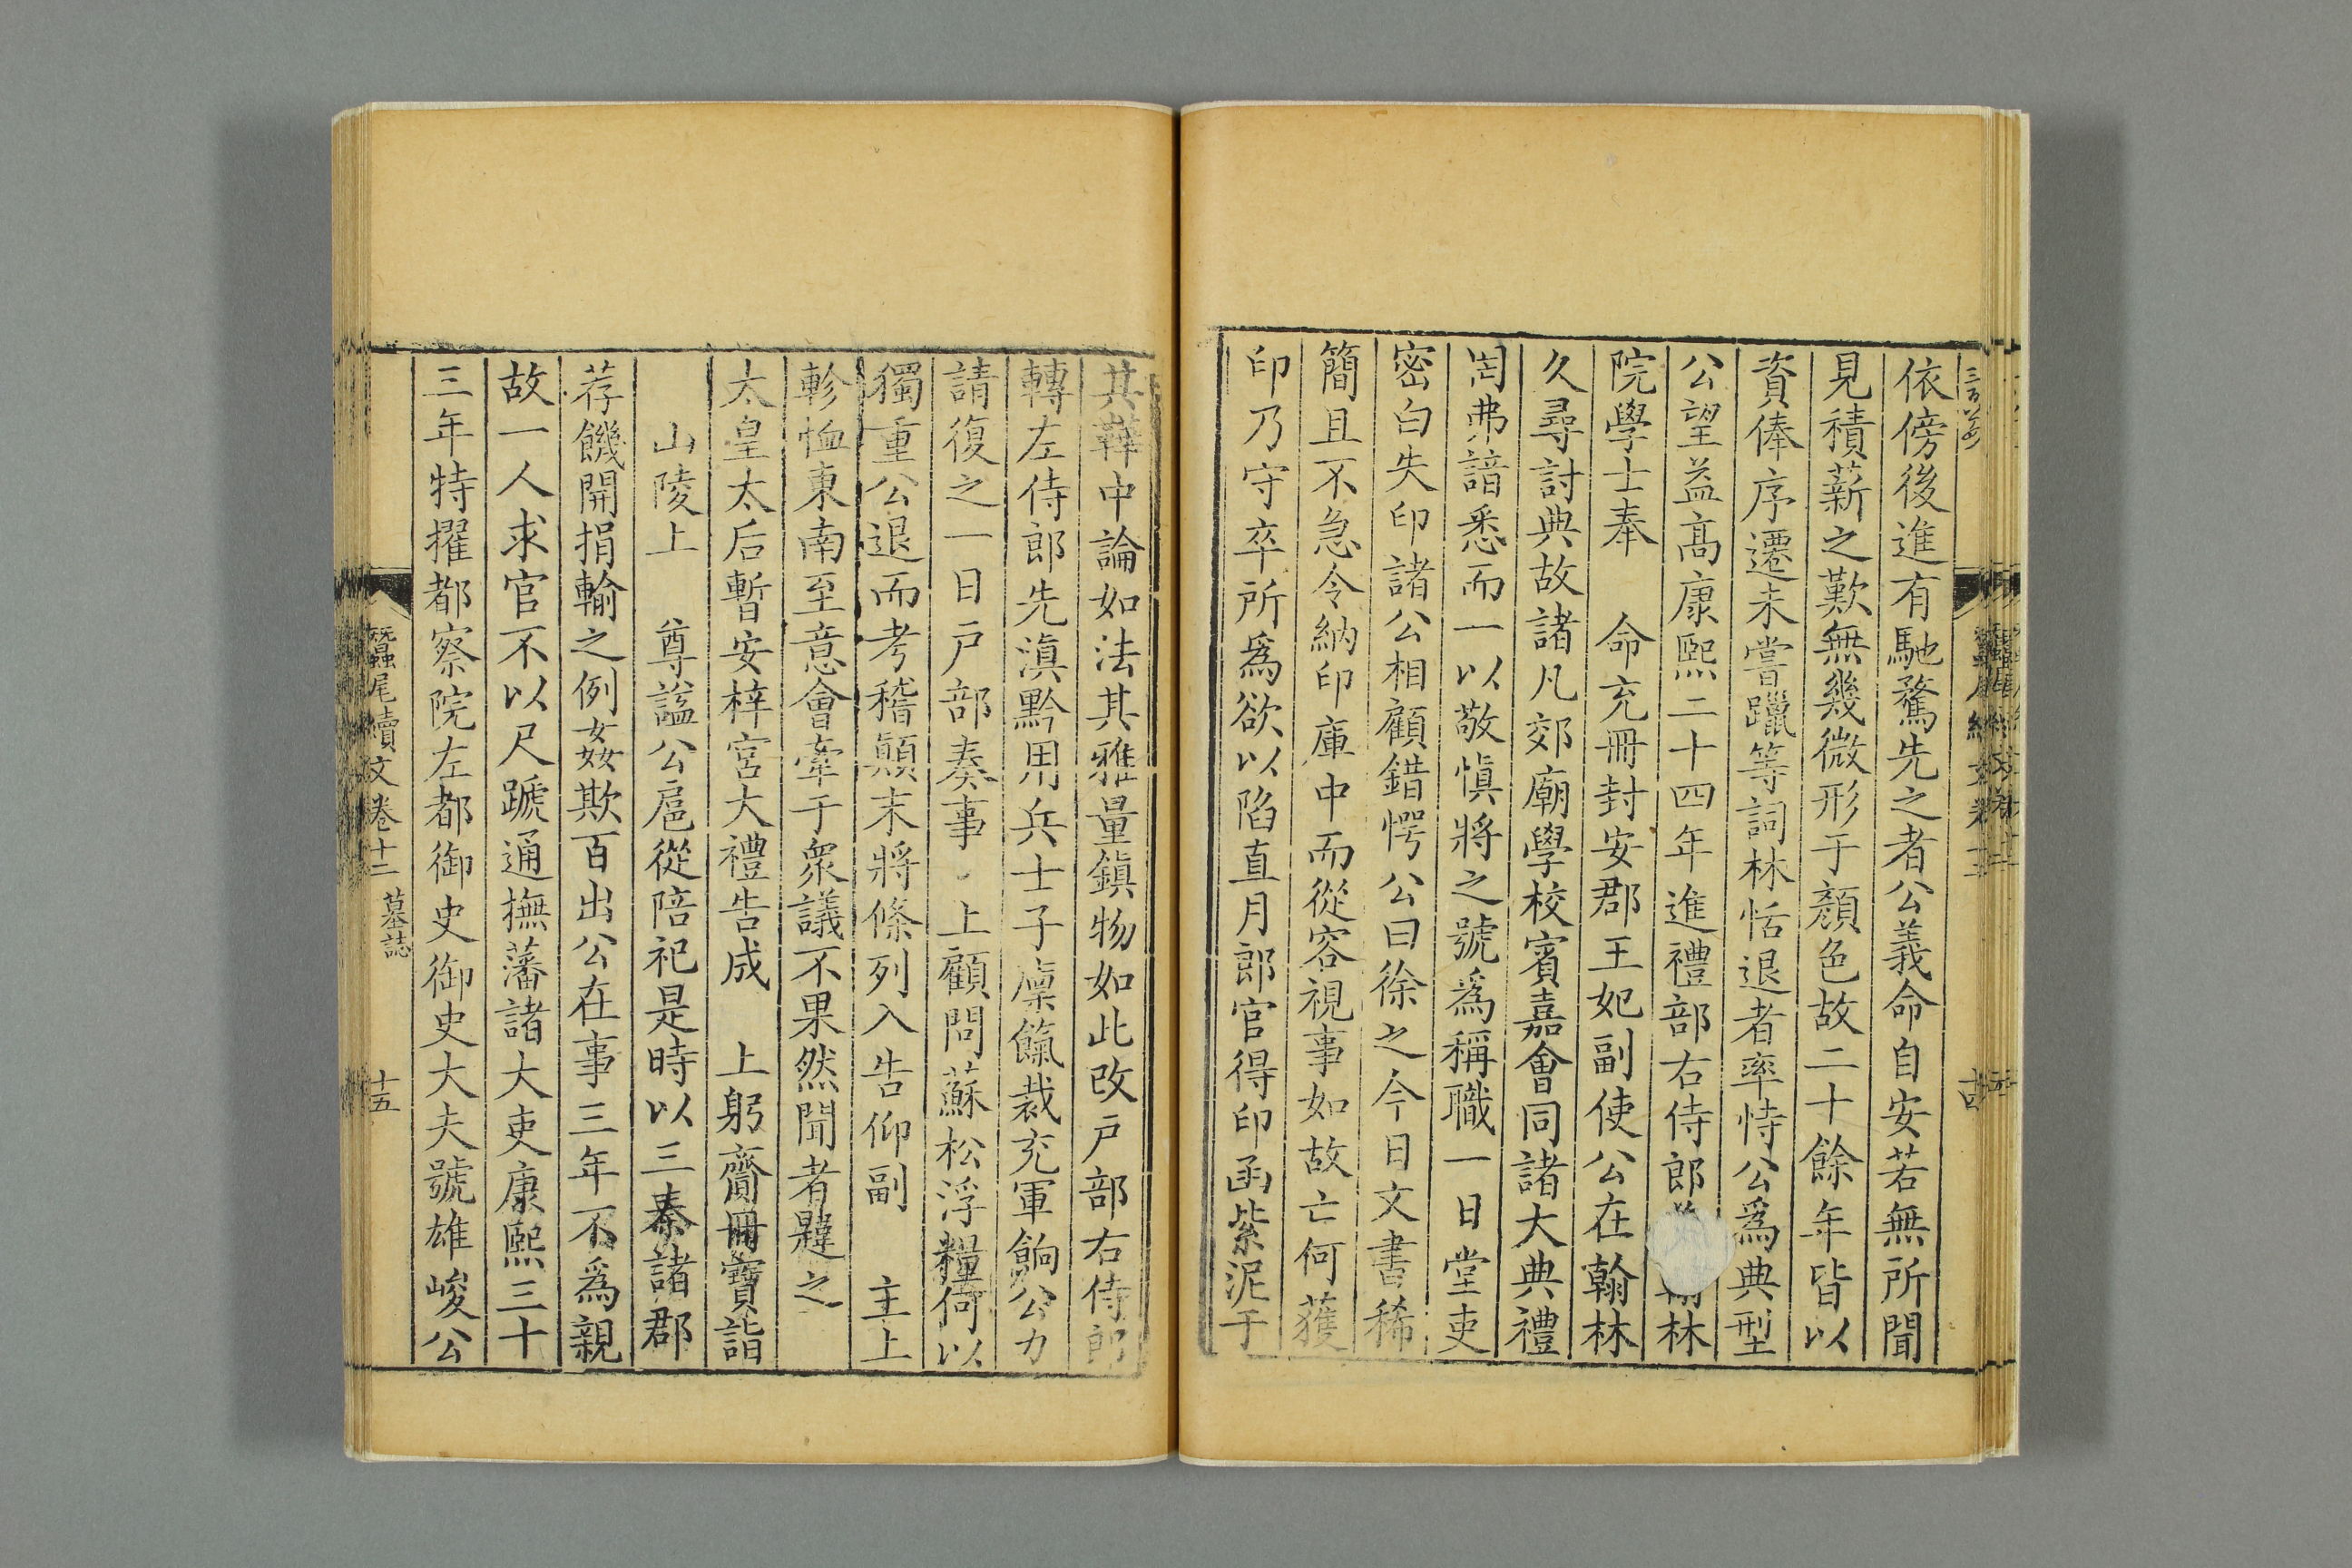 依傍後進有馳騖先之者公義命自安若無所聞
見積薪之歎無幾微形于顏色故二十餘年皆以
資俸序遷未嘗躐等詞林恬退者率恃公爲典型
公望益高康熙二十四年進禮部右侍郎 翰林
院學士奉 命充冊封安郡王妃副使公在翰林
久尋討典故諸凡郊廟學校賓嘉會同諸大典禮
罔弗諳悉而一以敬慎將之號爲稱職一日堂吏
密白失印諸公相顧錯愕公曰徐之今日文書稀
簡且不急令納印庫中而從容視事如故亡何獲
印乃守卒所爲欲以陷直月郎官得印函紫泥于
其鞾中論如法其雅量鎮物如此改戸部右侍郎
轉左侍郎先滇黔用兵士子廩餼裁充軍餉公力
請復之一日戸部奏事 上顧問蘇松浮糧何以
獨重公退而考稽顛末將條列入告仰副 主上
軫恤東南至意會牽于衆議不果然聞者韙之
太皇太后暫安梓宮大禮告成 上躬齎冊寶詣
山陵上 尊謚公扈從陪祀是時以三秦諸郡
荐饑開捐輸之例姦欺百出公在事三年不爲親
故一人求官不以尺蹏通撫藩諸大吏康熙三十
三年特擢都察院左都御史御史大夫號雄峻公
蠶尾續文卷十二 墓誌 十五